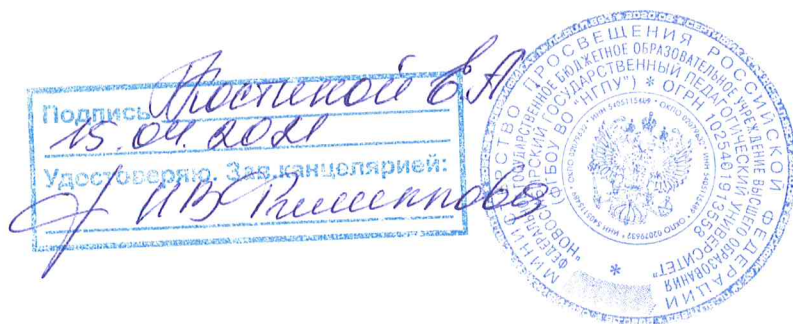 Подпись Простиной Е.А
15.04.2021
Удостоверяю. Зав.канцелярией:
И.В.
МИНИСТЕРСТВО ПРОСВЕЩЕНИЯ РОССИЙСКОЙ ФЕДЕРАЦИИ *
ФЕДЕРАЛЬНОЕ ГОСУДАРСТВЕННОЕ БЮДЖЕТНОЕ ОБРАЗОВАТЕЛЬНОЕ УЧРЕЖДЕНИЕ ВЫСШЕГО ОБРАЗОВАНИЯ
"НОВОСИБИРСКИЙ ГОСУДАРСТВЕННЫЙ ПЕДАГОГИЧЕСКИЙ УНИВЕРСИТЕТ"
(ФГБОУ ВО "НГПУ") * ОГРН 1025401915558